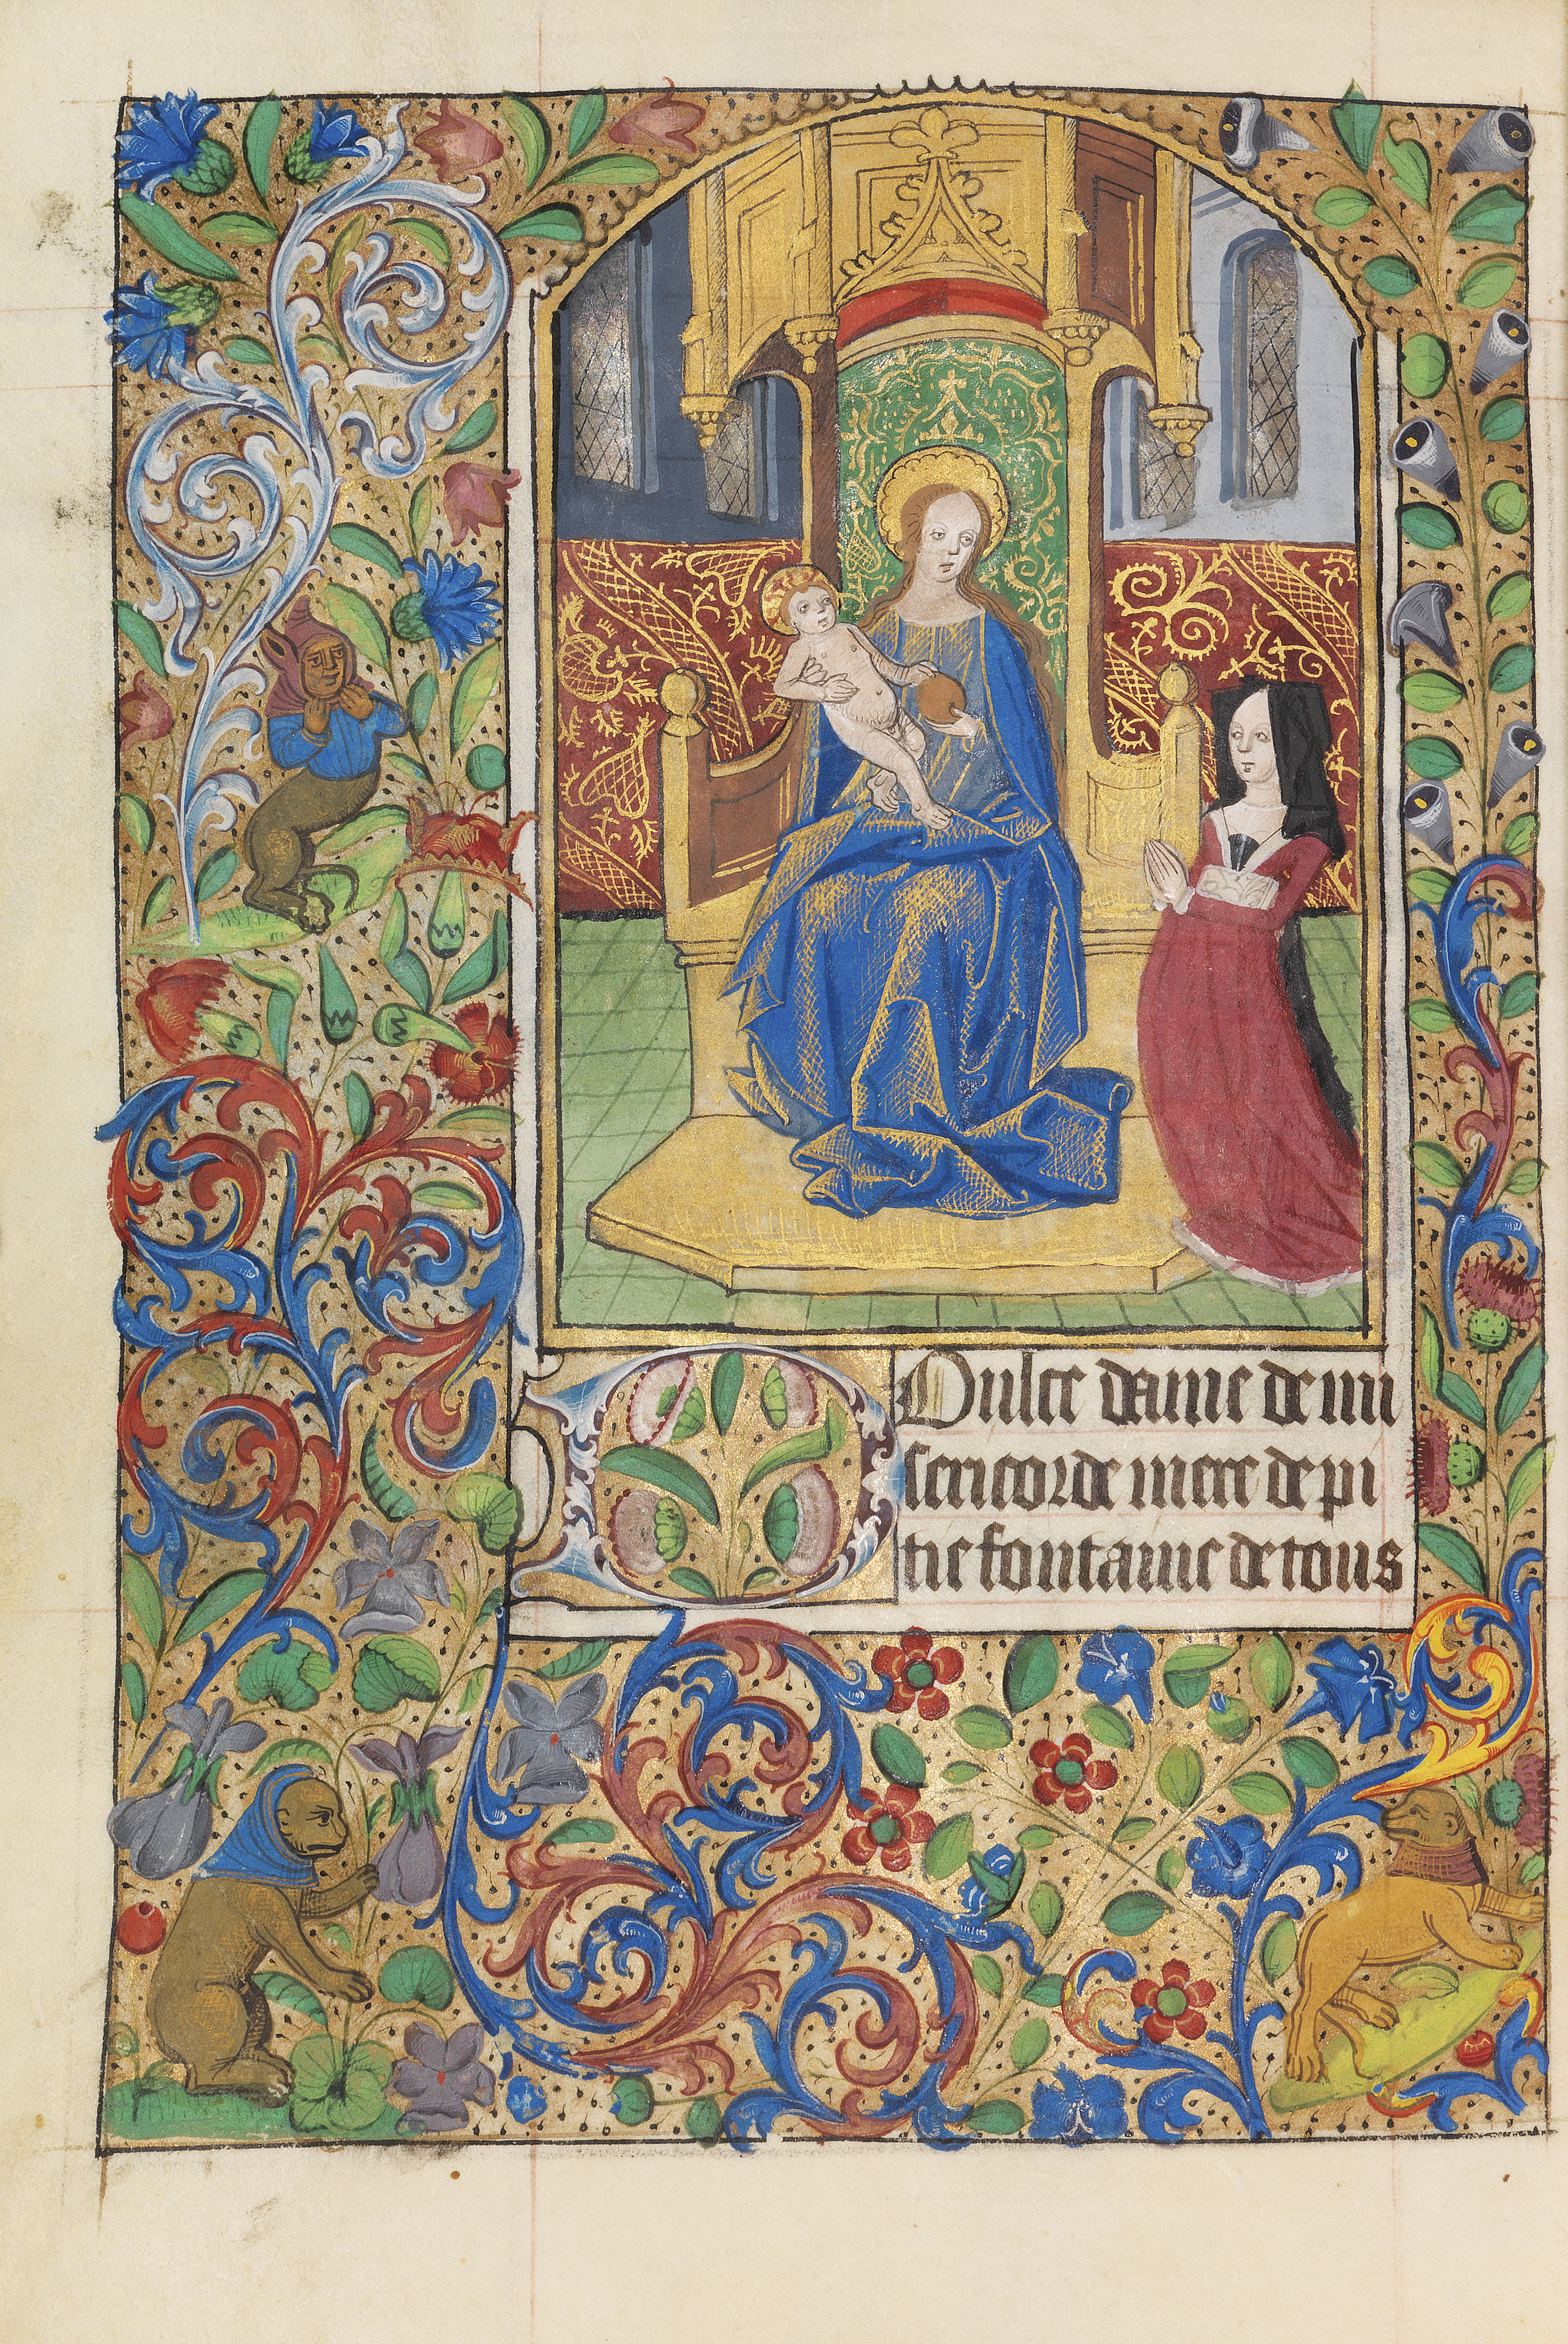 Dulce dame de mi
sericorde mere de pi
tie fontaine de tous